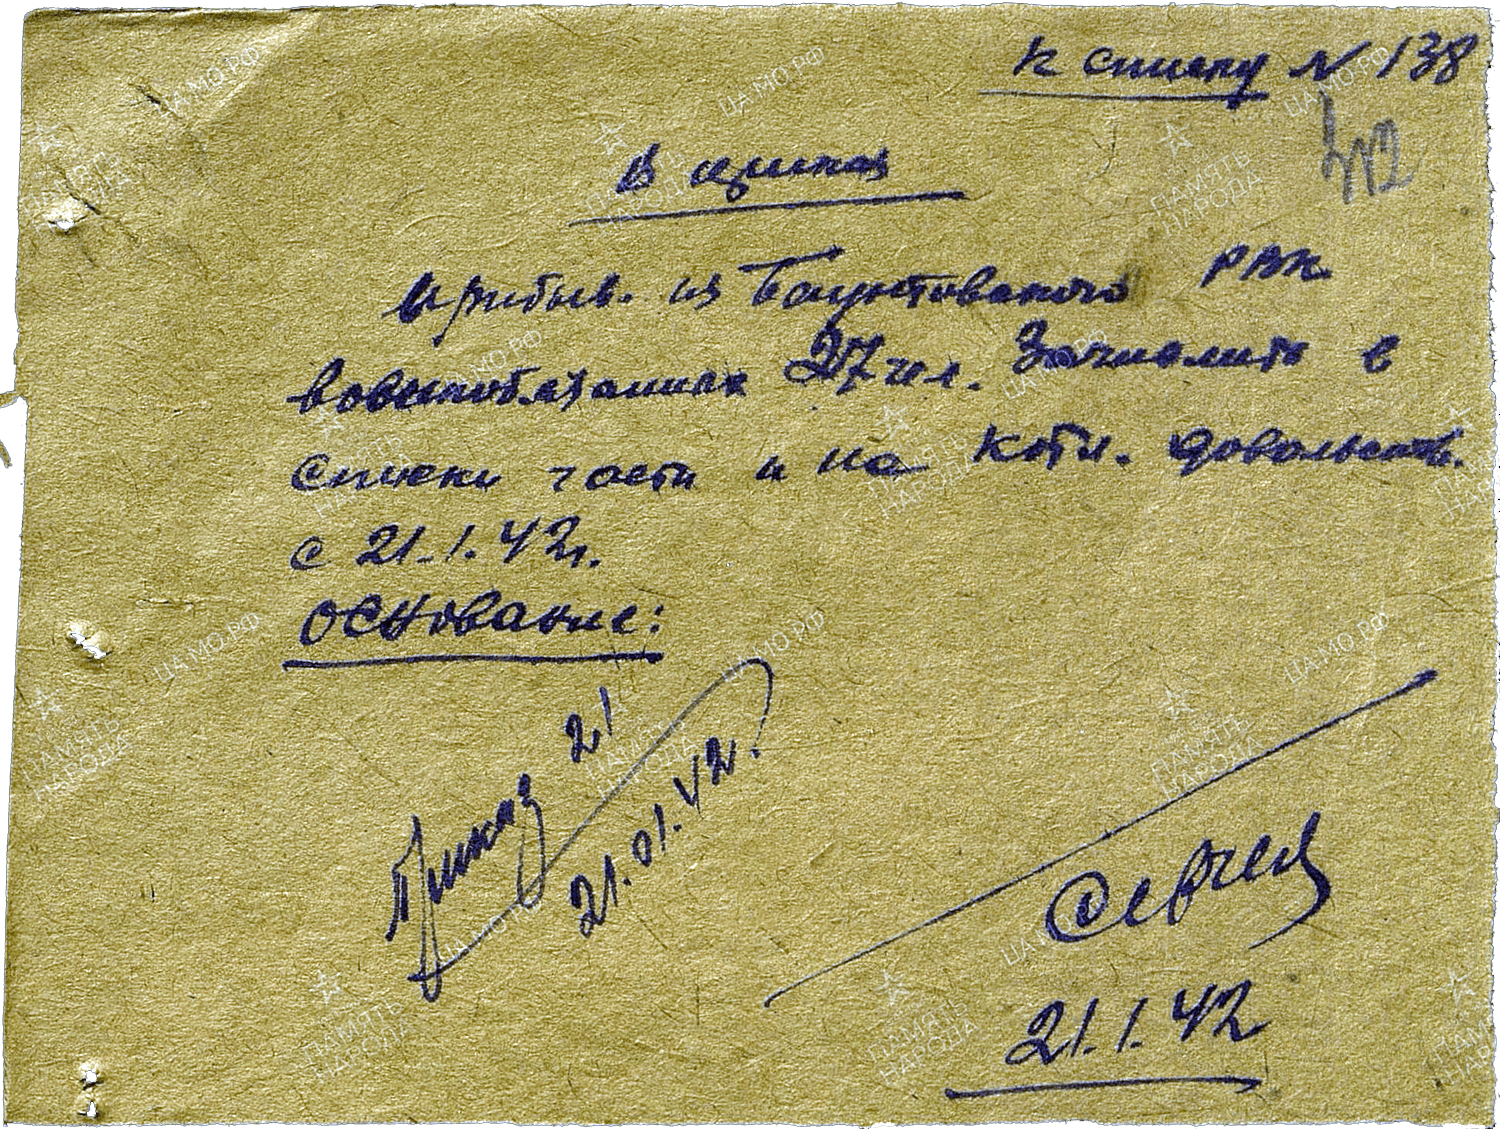 к списку N 138
442
В приказ
Прибыв. из Баунтовского РВК
военнообязаных 27 чел. Зачислить в
списки части и на котл. довольств.
с 21.1.42г.
Основание:
Приказ 21
21.01.42.
21.1.42
ЦА МО РФ
ПАМЯТЬ НАРОДА